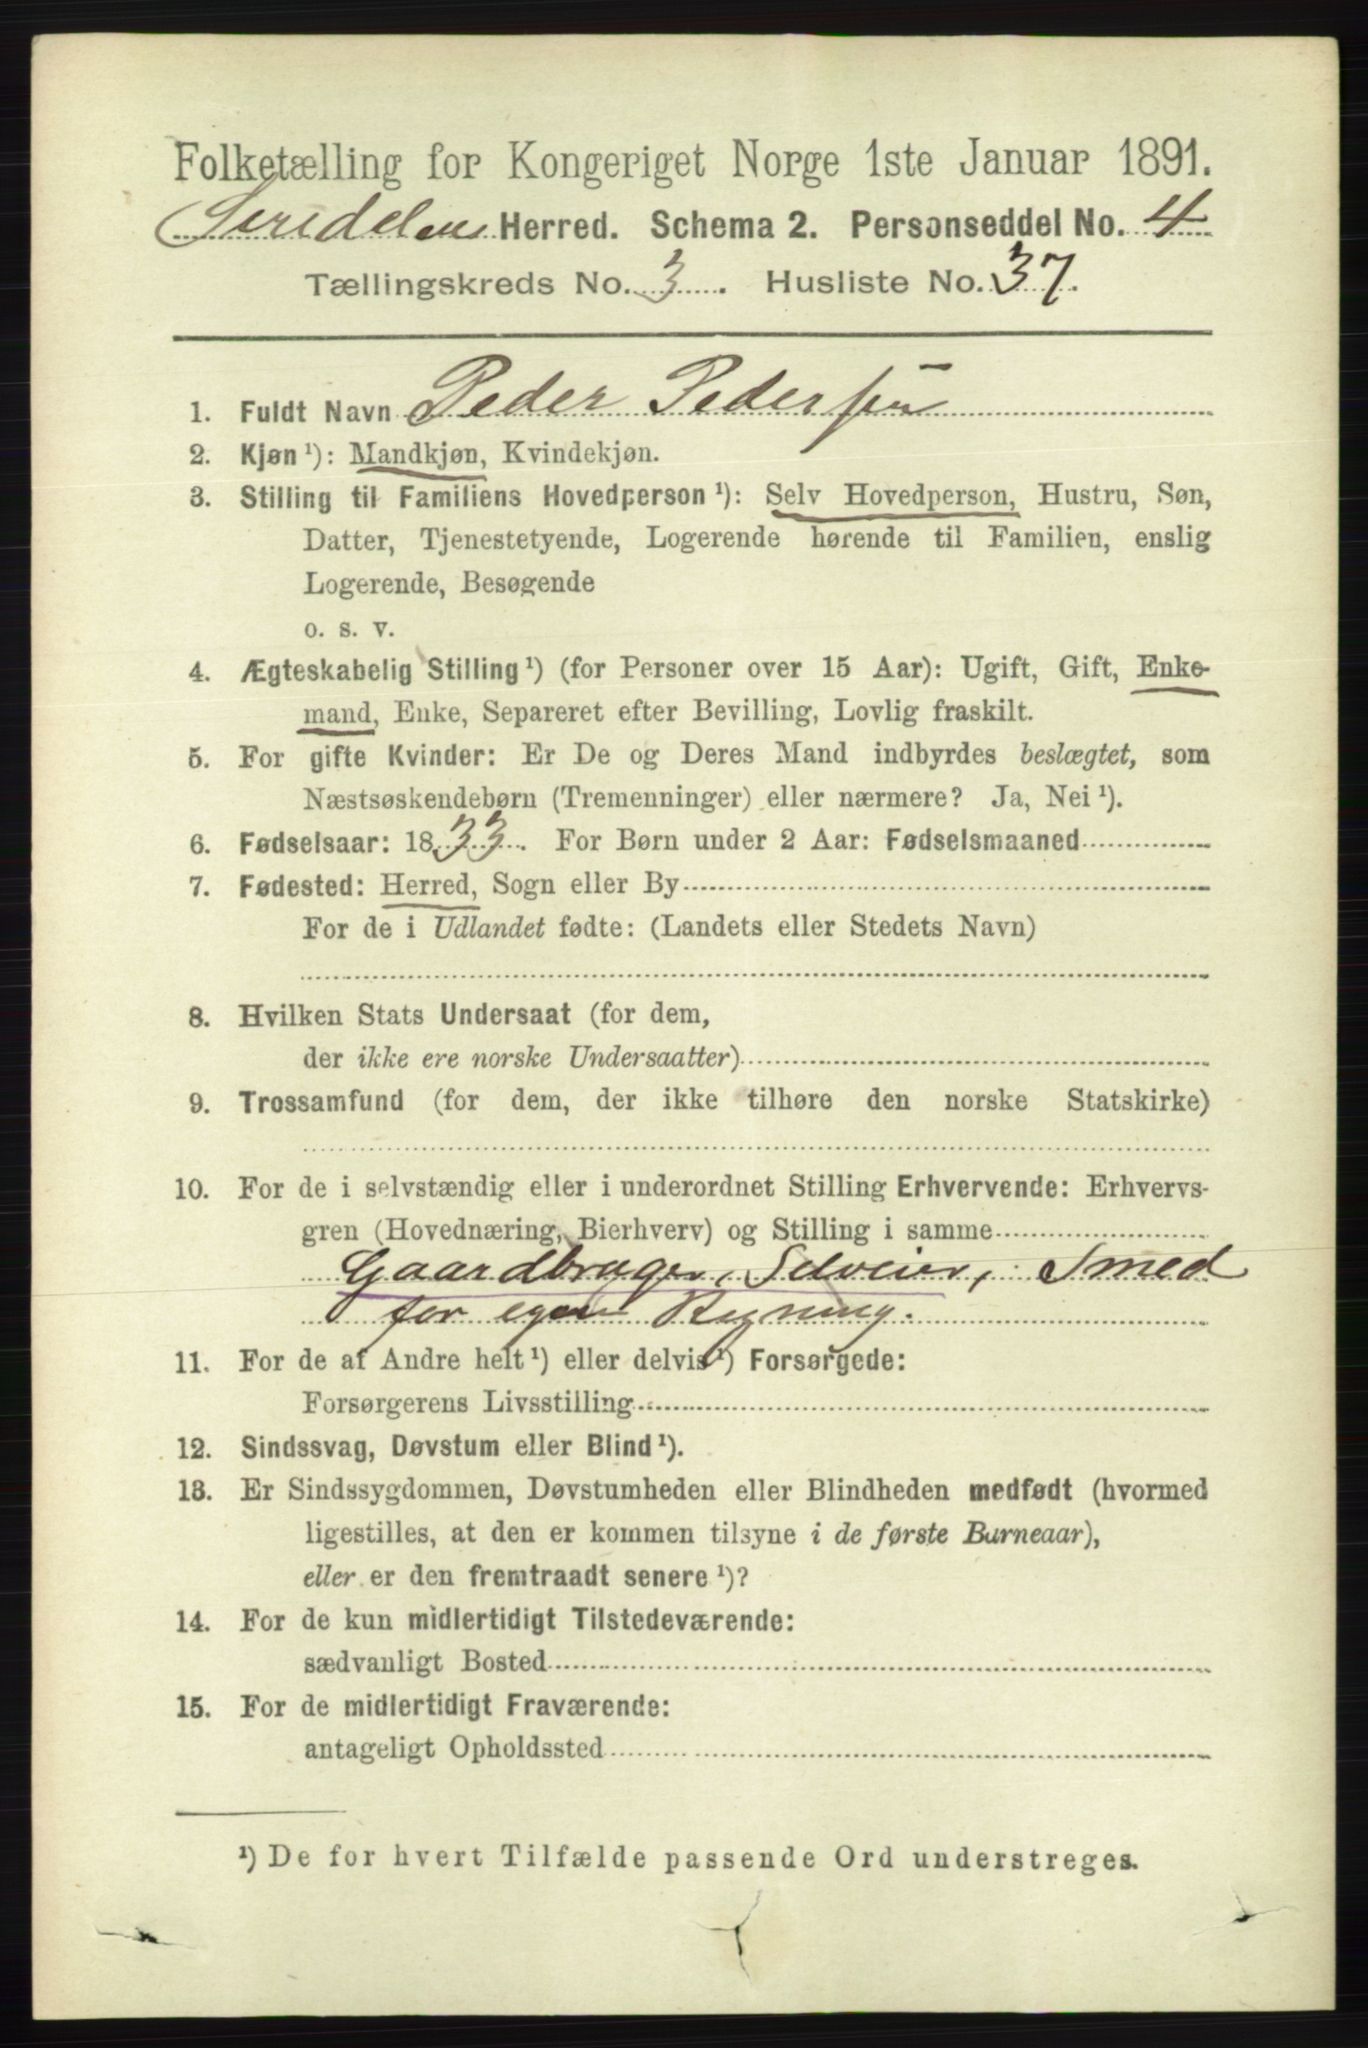 Folketælling for Kongeriget Norge 1ste Januar 1891.
Siredalens Herred. Schema 2. Personseddel No. 4
Tællingskreds No. 3. Husliste No. 37.
1. Fuldt Navn Peder Pedersen
2. Kjøn ¹): Mandkjøn, Kvindekjøn.
3. Stilling til Familiens Hovedperson ¹): Selv Hovedperson, Hustru, Søn,
Datter, Tjenestetyende, Logerende hørende til Familien, enslig
Logerende, Besøgende
o. s. v.
4. Ægteskabelig Stilling ¹) (for Personer over 15 Aar): Ugift, Gift, Enke-
mand, Enke, Separeret efter Bevilling, Lovlig fraskilt.
5. For gifte Kvinder: Er De og Deres Mand indbyrdes beslægtet, som
Næstsøskendebørn (Tremenninger) eller nærmere? Ja, Nei ¹).
6. Fødselsaar: 1833. For Børn under 2 Aar: Fødselsmaaned
7. Fødested: Herred, Sogn eller By
For de i Udlandet fødte: (Landets eller Stedets Navn)
8. Hvilken Stats Undersaat (for dem,
der ikke ere norske Undersaatter)
9. Trossamfund (for dem, der ikke tilhøre den norske Statskirke)
10. For de i selvstændig eller i underordnet Stilling Erhvervende: Erhvervs-
gren (Hovednæring, Bierhverv) og Stilling i samme
Gaardbruger, Selveier, Smed
for egen Regning.
11. For de af Andre helt ¹) eller delvis ¹) Forsørgede:
Forsørgerens Livsstilling
12. Sindssvag, Døvstum eller Blind ¹).
13. Er Sindssygdommen, Døvstumheden eller Blindheden medfødt (hvormed
ligestilles, at den er kommen tilsyne i de første Barneaar),
eller er den fremtraadt senere ¹)?
14. For de kun midlertidigt Tilstedeværende:
sædvanligt Bosted
15. For de midlertidigt Fraværende:
antageligt Opholdssted
¹) De for hvert Tilfælde passende Ord understreges.